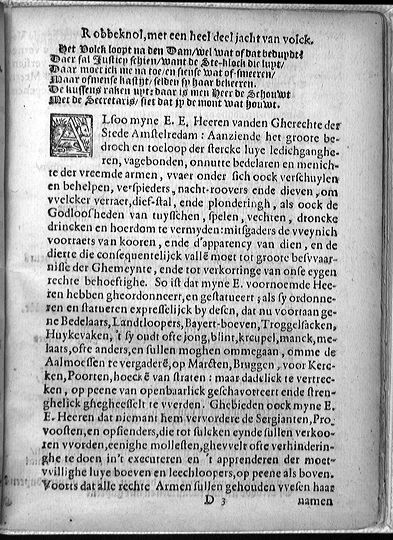 Robbeknol, met een heel deel jacht van volck.
Het Volck loopt na den Dam/wel wat of dat beduydt?
Daer sal Justicy schien/want de Ste-klock die luyt/
Daar moet ick me na toe/en siense wat of-smeeren/
Maar ofmense hastht/selden sy haar bekeeren.
De kussens raken uyt: daar is men Heer de Schouwt
Met de Secretaris/ siet dat jy de mont wat houwt.
ALsoo myne E. E. Heeren vanden Gherechte der
Stede Amstelredam: Aanziende het groote be-
droch en toeloop der stercke luye ledichganghe-
ren, vagebonden, onnutte bedelaren en menich-
te der vreemde armen, vvaer onder sich oock verschuylen
en behelpen, verspieders, nacht-roovers ende dieven, om
vvelcker verraet, dief-stal, ende plonderingh, als oock de
Godloosheden van tuysschen, spelen, vechten, droncke
drincken en hoerdom te vermyden: mitsgaders de vveynich
voorraets van kooren, ende d'apparency van dien, en de
dierte die consequentelijck vallē moet tot groote besvvaar-
nisse der Ghemeynte, ende tot verkortinge van onse eygen
rechte behoeftighe. So ist dat myne E. voornoemde Hee-
ren hebben gheordonneert, en gestatueert; als sy ordonne-
ren en statueren expresselijck by desen, dat nu voortaan ge-
ne Bedelaars, Landtloopers, Bayert-boeven, Troggelsacken,
Huykevaken, 't sy oudt ofte jong, blint, kreupel, manck, me-
laats, ofte anders, en sullen moghen ommegaan, omme de
Aalmoessen te vergaderē, op Marcten, Bruggen, voor Kerc-
ken, Poorten, hoeckē van straten: maar dadelick te vertrec-
ken, op peene van openbaarlick geschavotteert ende stren-
ghelick ghegheesselt te vverden. Ghebieden oock myne E.
E. Heeren dat niemant hem vervordere de Sergianten, Pro-
voosten, en opsienders, die tot sulcken eynde sullen verkoo-
ren vvorden, eenighe mollesten, ghevvelt ofte verhinderin-
ghe te doen in't executeren en 't apprenderen der moet-
vvillighe luye boeven en leechloopers, op peene als boven.
Voorts dat alle rechte Armen sullen gehouden vvesen haar
D 3 namen